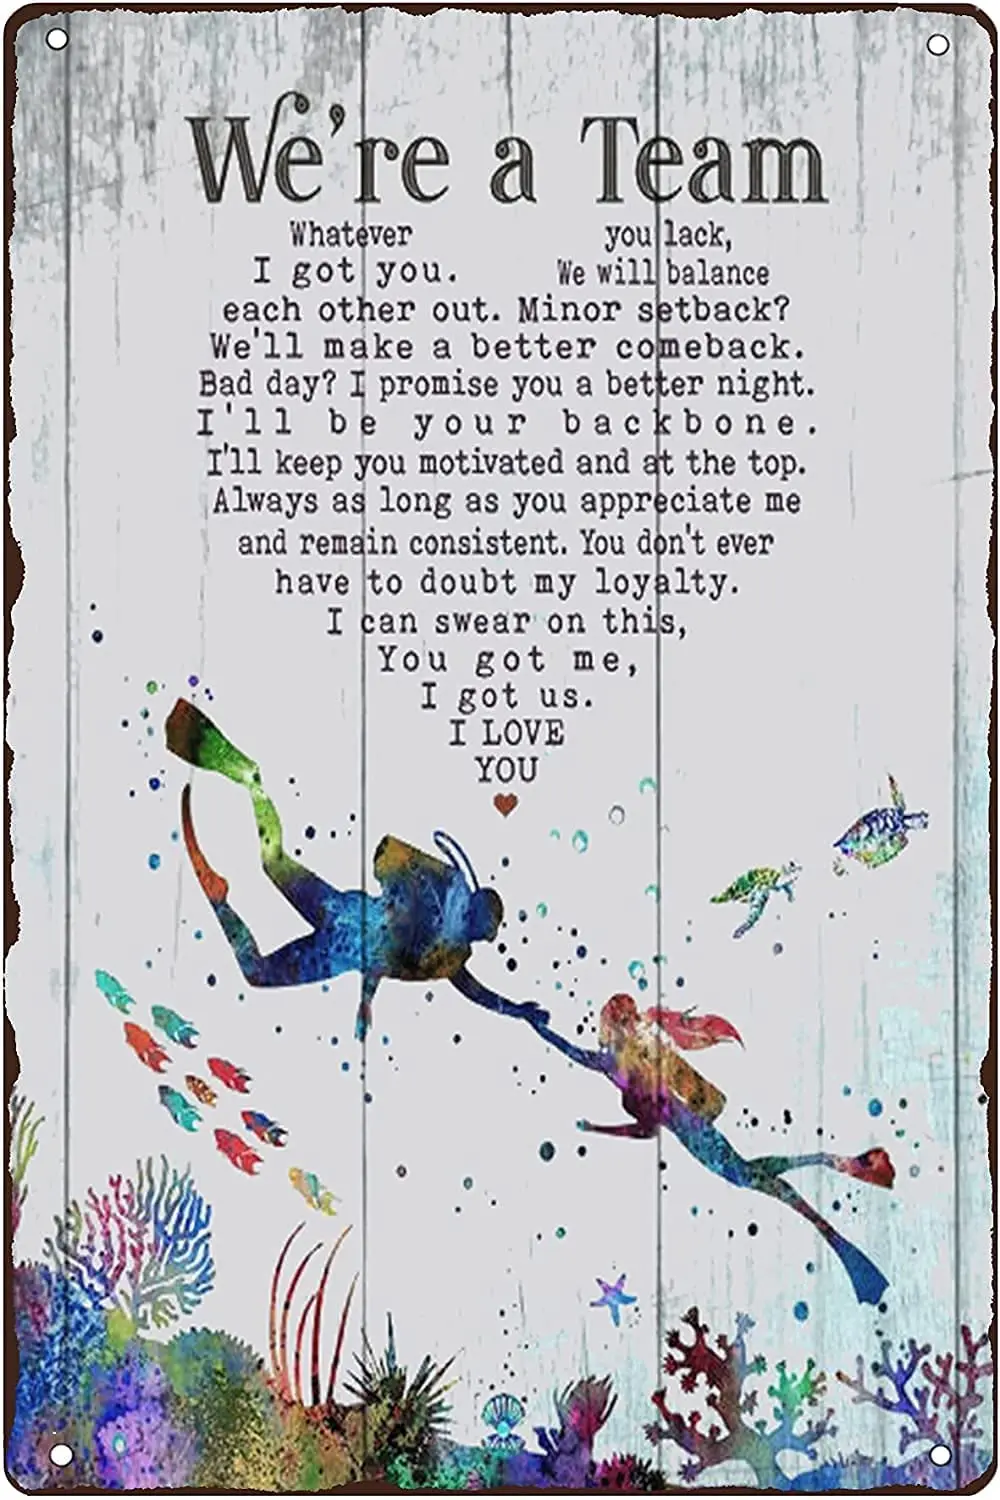 We're a Team
Whatever you lack,
I got you. We will balance
each other out. Minor setback?
We'll make a better comeback.
Bad day? I promise you a better night.
I'll be your backbone.
I'll keep you motivated and at the top.
Always as long as you appreciate me
and remain consistent. You don't ever
have to doubt my loyalty.
I can swear on this,
You got me,
I got us.
I LOVE
YOU